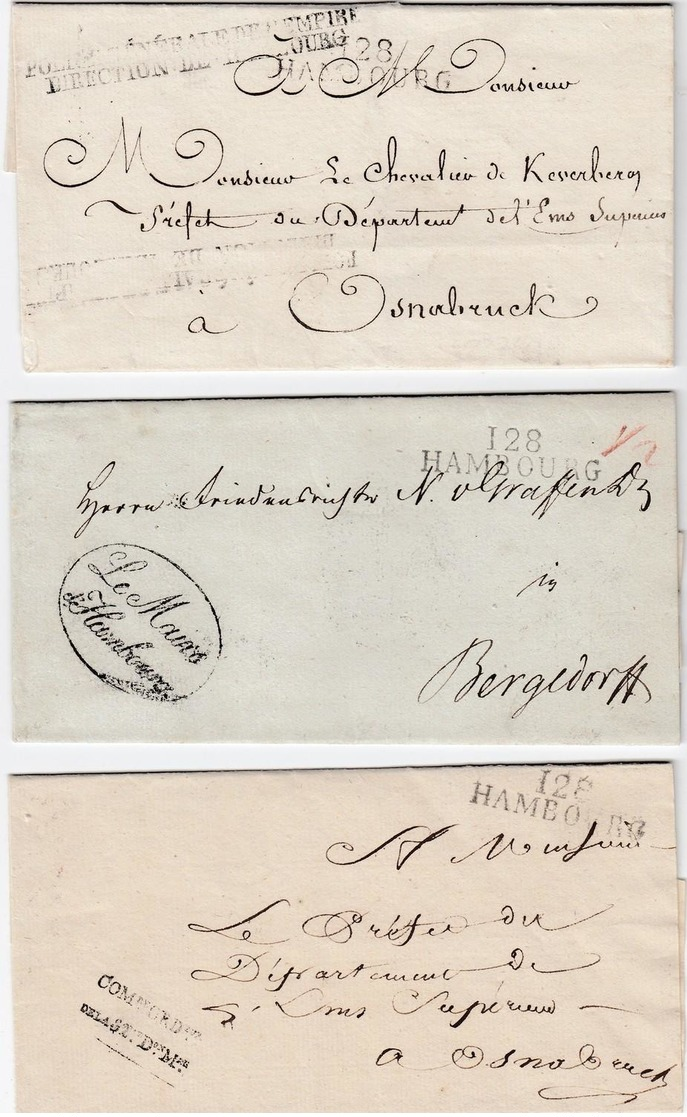 POLICE GÉNÉRALE DE L'EMPIRE
DIRECTION DE HAMBOURG
128
HAMBOURG
A Monsieur
Monsieur Le Chevalier de Keverberg
Préfet du Départemt de l'Ems Supérieur
à Osnabruck
128
HAMBOURG
Herrn Friedensrichter N. v Graffen Dr
in
Bergedorff
Le Maire
de Hambourg
128
HAMBOURG
A Monsieur
Le Préfet du
Département de
L'Ems Supérieur
a Osnabruck
COMRE ORDR
DE LA 32E DON MRE